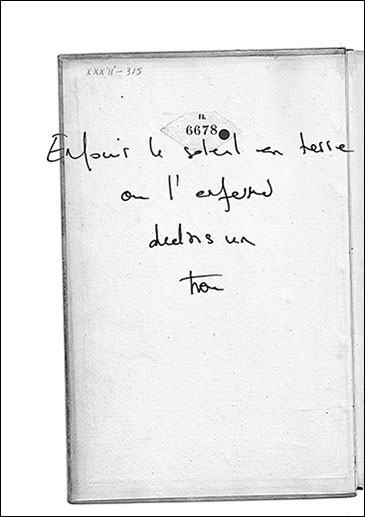 XXXII - 315
FL
6678
Enfouir le soleil en terre
ou l'enfermer
dedans un
trou